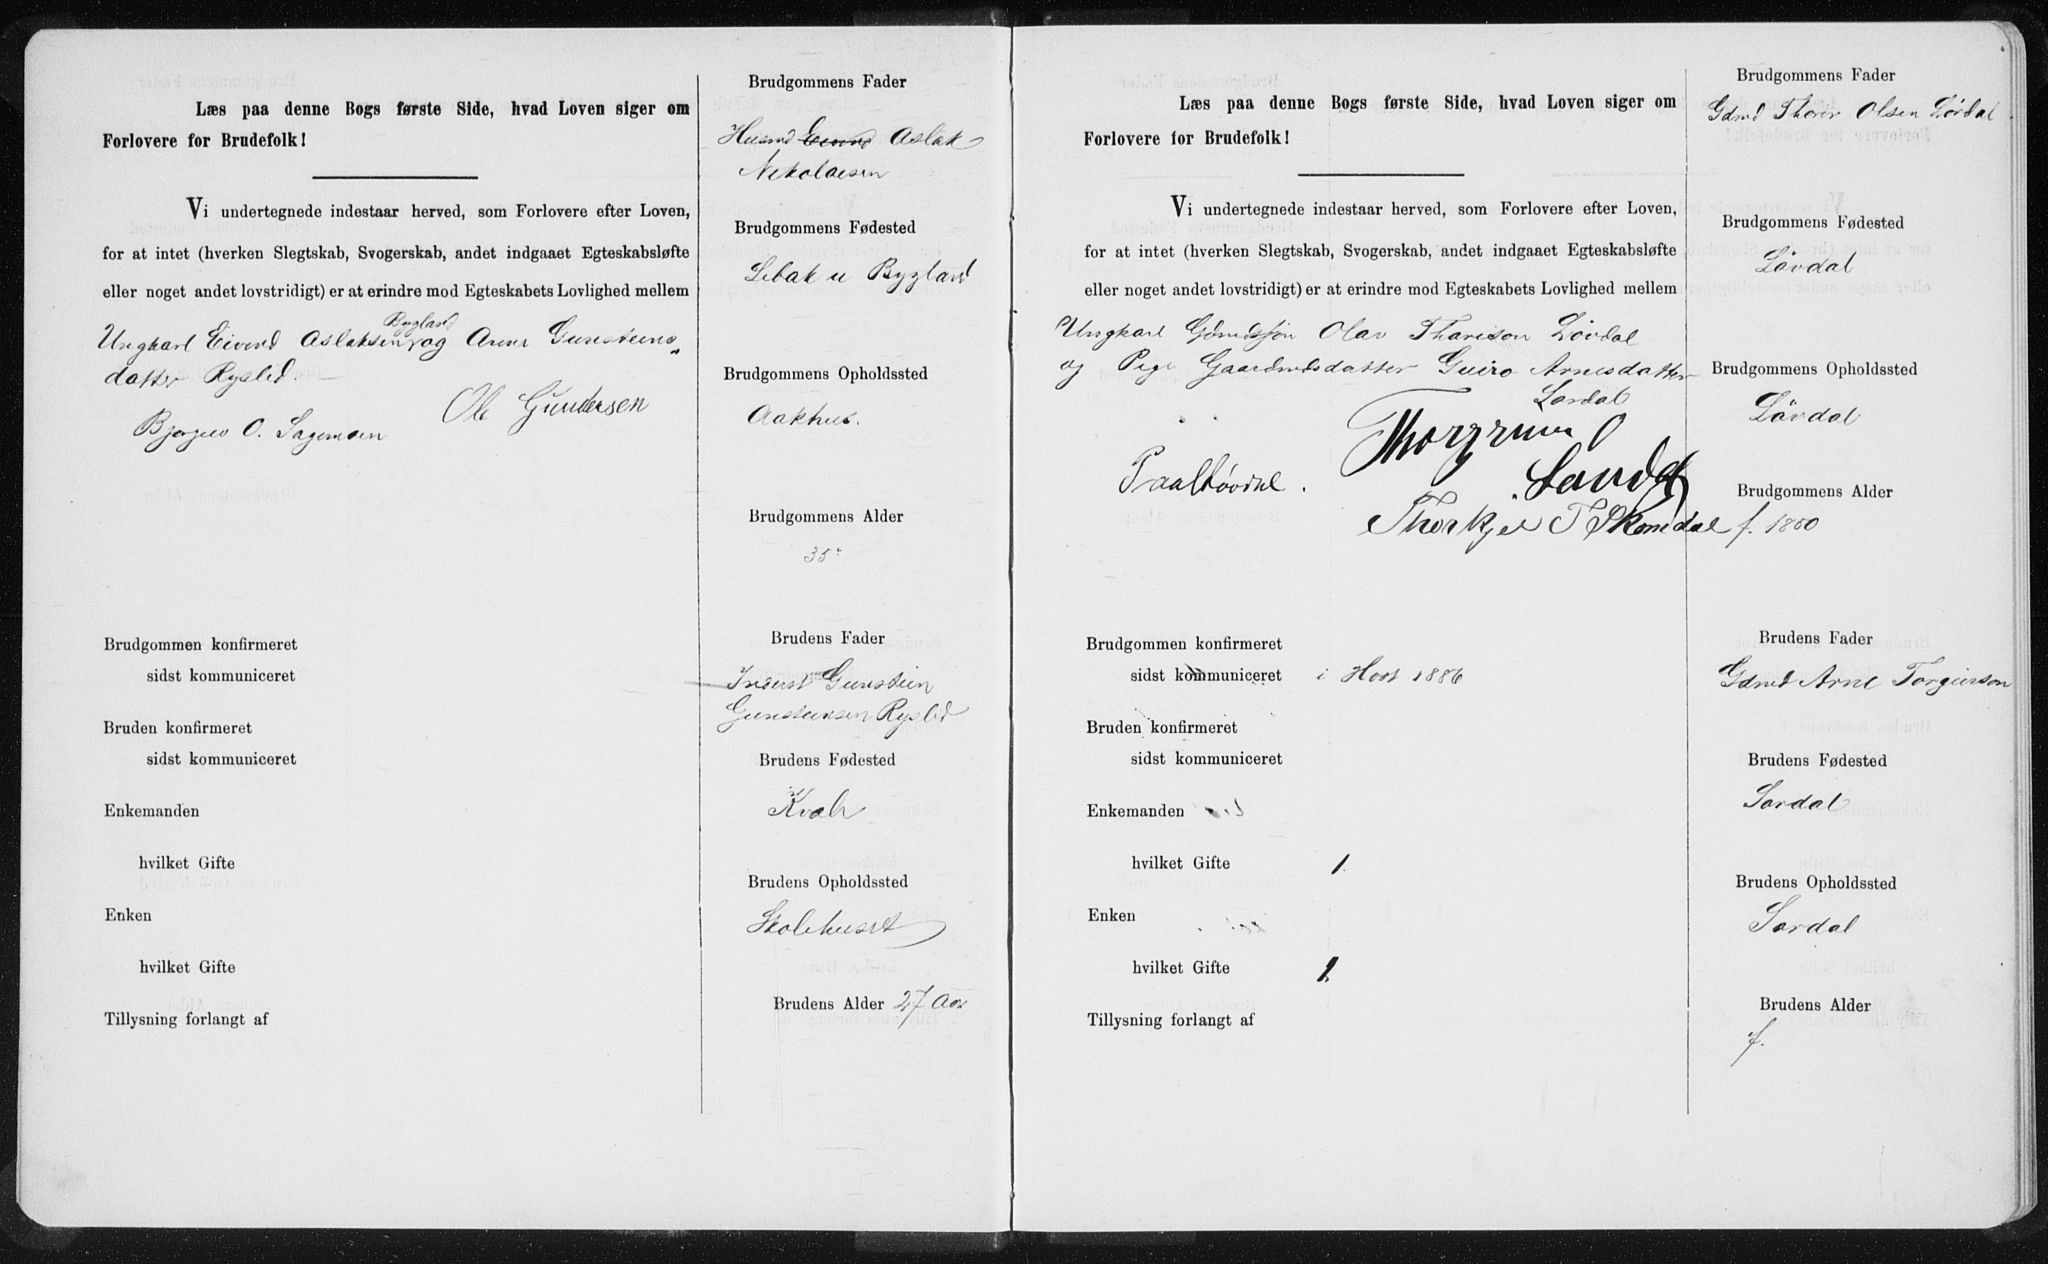 Læs paa denne Bogs første Side, hvad Loven siger om
Forlovere for Brudefolk!
Vi undertegnede indestaar herved, som Forlovere efter Loven,
for at intet (hverken Slegtskab, Svogerskab, andet indgaaet Egteskabsløfte
eller noget andet lovstridigt) er at erindre mod Egteskabets Lovlighed mellem
Bygland
Ungkarl Eivind Aslaksen og Anne Gunsteins„
datter Ryslid.
Ole Gundersen
O. Sagemoen
Brudgommen konfirmeret
sidst kommuniceret
Bruden konfirmeret
sidst kommuniceret
Enkemanden
hvilket Gifte
Enken
hvilket Gifte
Tillysning forlangt af
Brudgommens Fader
Husmd Eivind Aslak
Nikolaisen
Brudgommens Fødested
Bygland
Brudgommens Opholdssted
Aakhus.
Brudgommens Alder
35
Brudens Fader
Inderst Gunstein
Gunsteinsen Ryslid
Brudens Fødested
Brudens Opholdssted
Skolehuset
Brudens Alder 27 Aar
Læs paa denne Bogs første Side, hvad Loven siger om
Forlovere for Brudefolk!
Vi undertegnede indestaar herved, som Forlovere efter Loven,
for at intet (hverken Slegtskab, Svogerskab, andet indgaaet Egteskabsløfte
eller noget andet lovstridigt) er at erindre mod Egteskabets Lovlighed mellem
Ungkarl Gdmdssøn Olav Thorison Løvdal
og Pige Gaardmdsdatter Guro Arnesdatter
Sordal
Thorgrim
Paal Løvdal.
Sordal
Thorkje T Skomedal
Brudgommen konfirmeret
sidst kommuniceret i Host 1886
Bruden konfirmeret
sidst kommuniceret
Enkemanden
hvilket Gifte 1
Enken
hvilket Gifte 1
Tillysning forlangt af
Brudgommens Fader
Gdmd Thorer Olsen Løvdal
Brudgommens Fødested
Løvdal
Brudgommens Opholdssted
Løvdal
Brudgommens Alder
f. 1860
Brudens Fader
Gdmd Arne Torgierson
Brudens Fødested
Sordal
Brudens Opholdssted
Sordal
Brudens Alder
f.